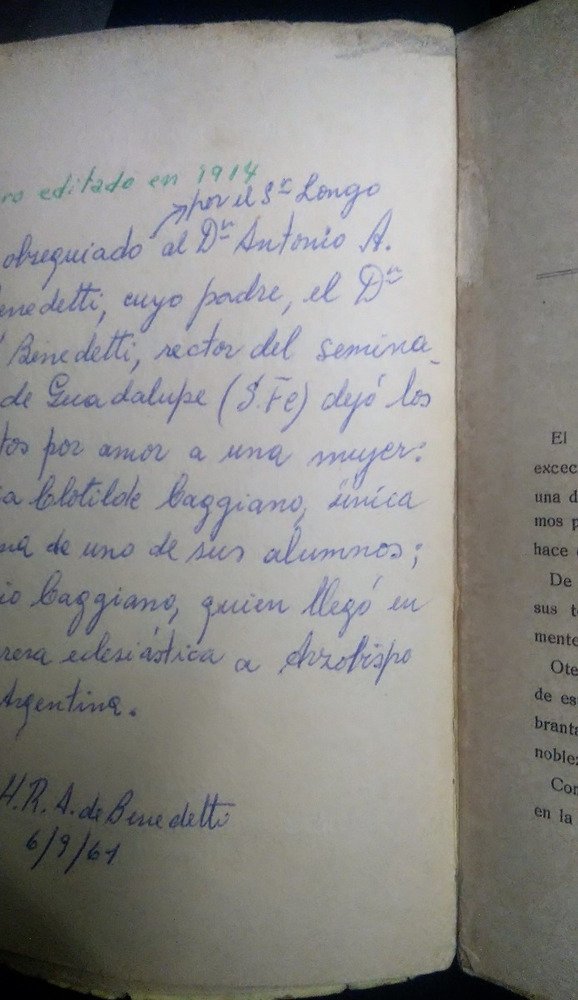 ro editado en 1914
por el Sr Longo
obsequiado al Dr Antonio A.
enedetti, cuyo padre, el Dr
Benedetti, rector del semina-
de Guadalupe (S. Fe) dejó los
tos por amor a una mujer:
ia Clotilde Caggiano, única
na de uno de sus alumnos;
io Caggiano, quien llegó en
rera eclesiástica a Arzobispo
Argentina.
H. R. A. de Benedetti
6/9/61
El
excec
una d
mos p
hace
De
sus t
mente
Ote
de es
branta
noblez
Con
en la